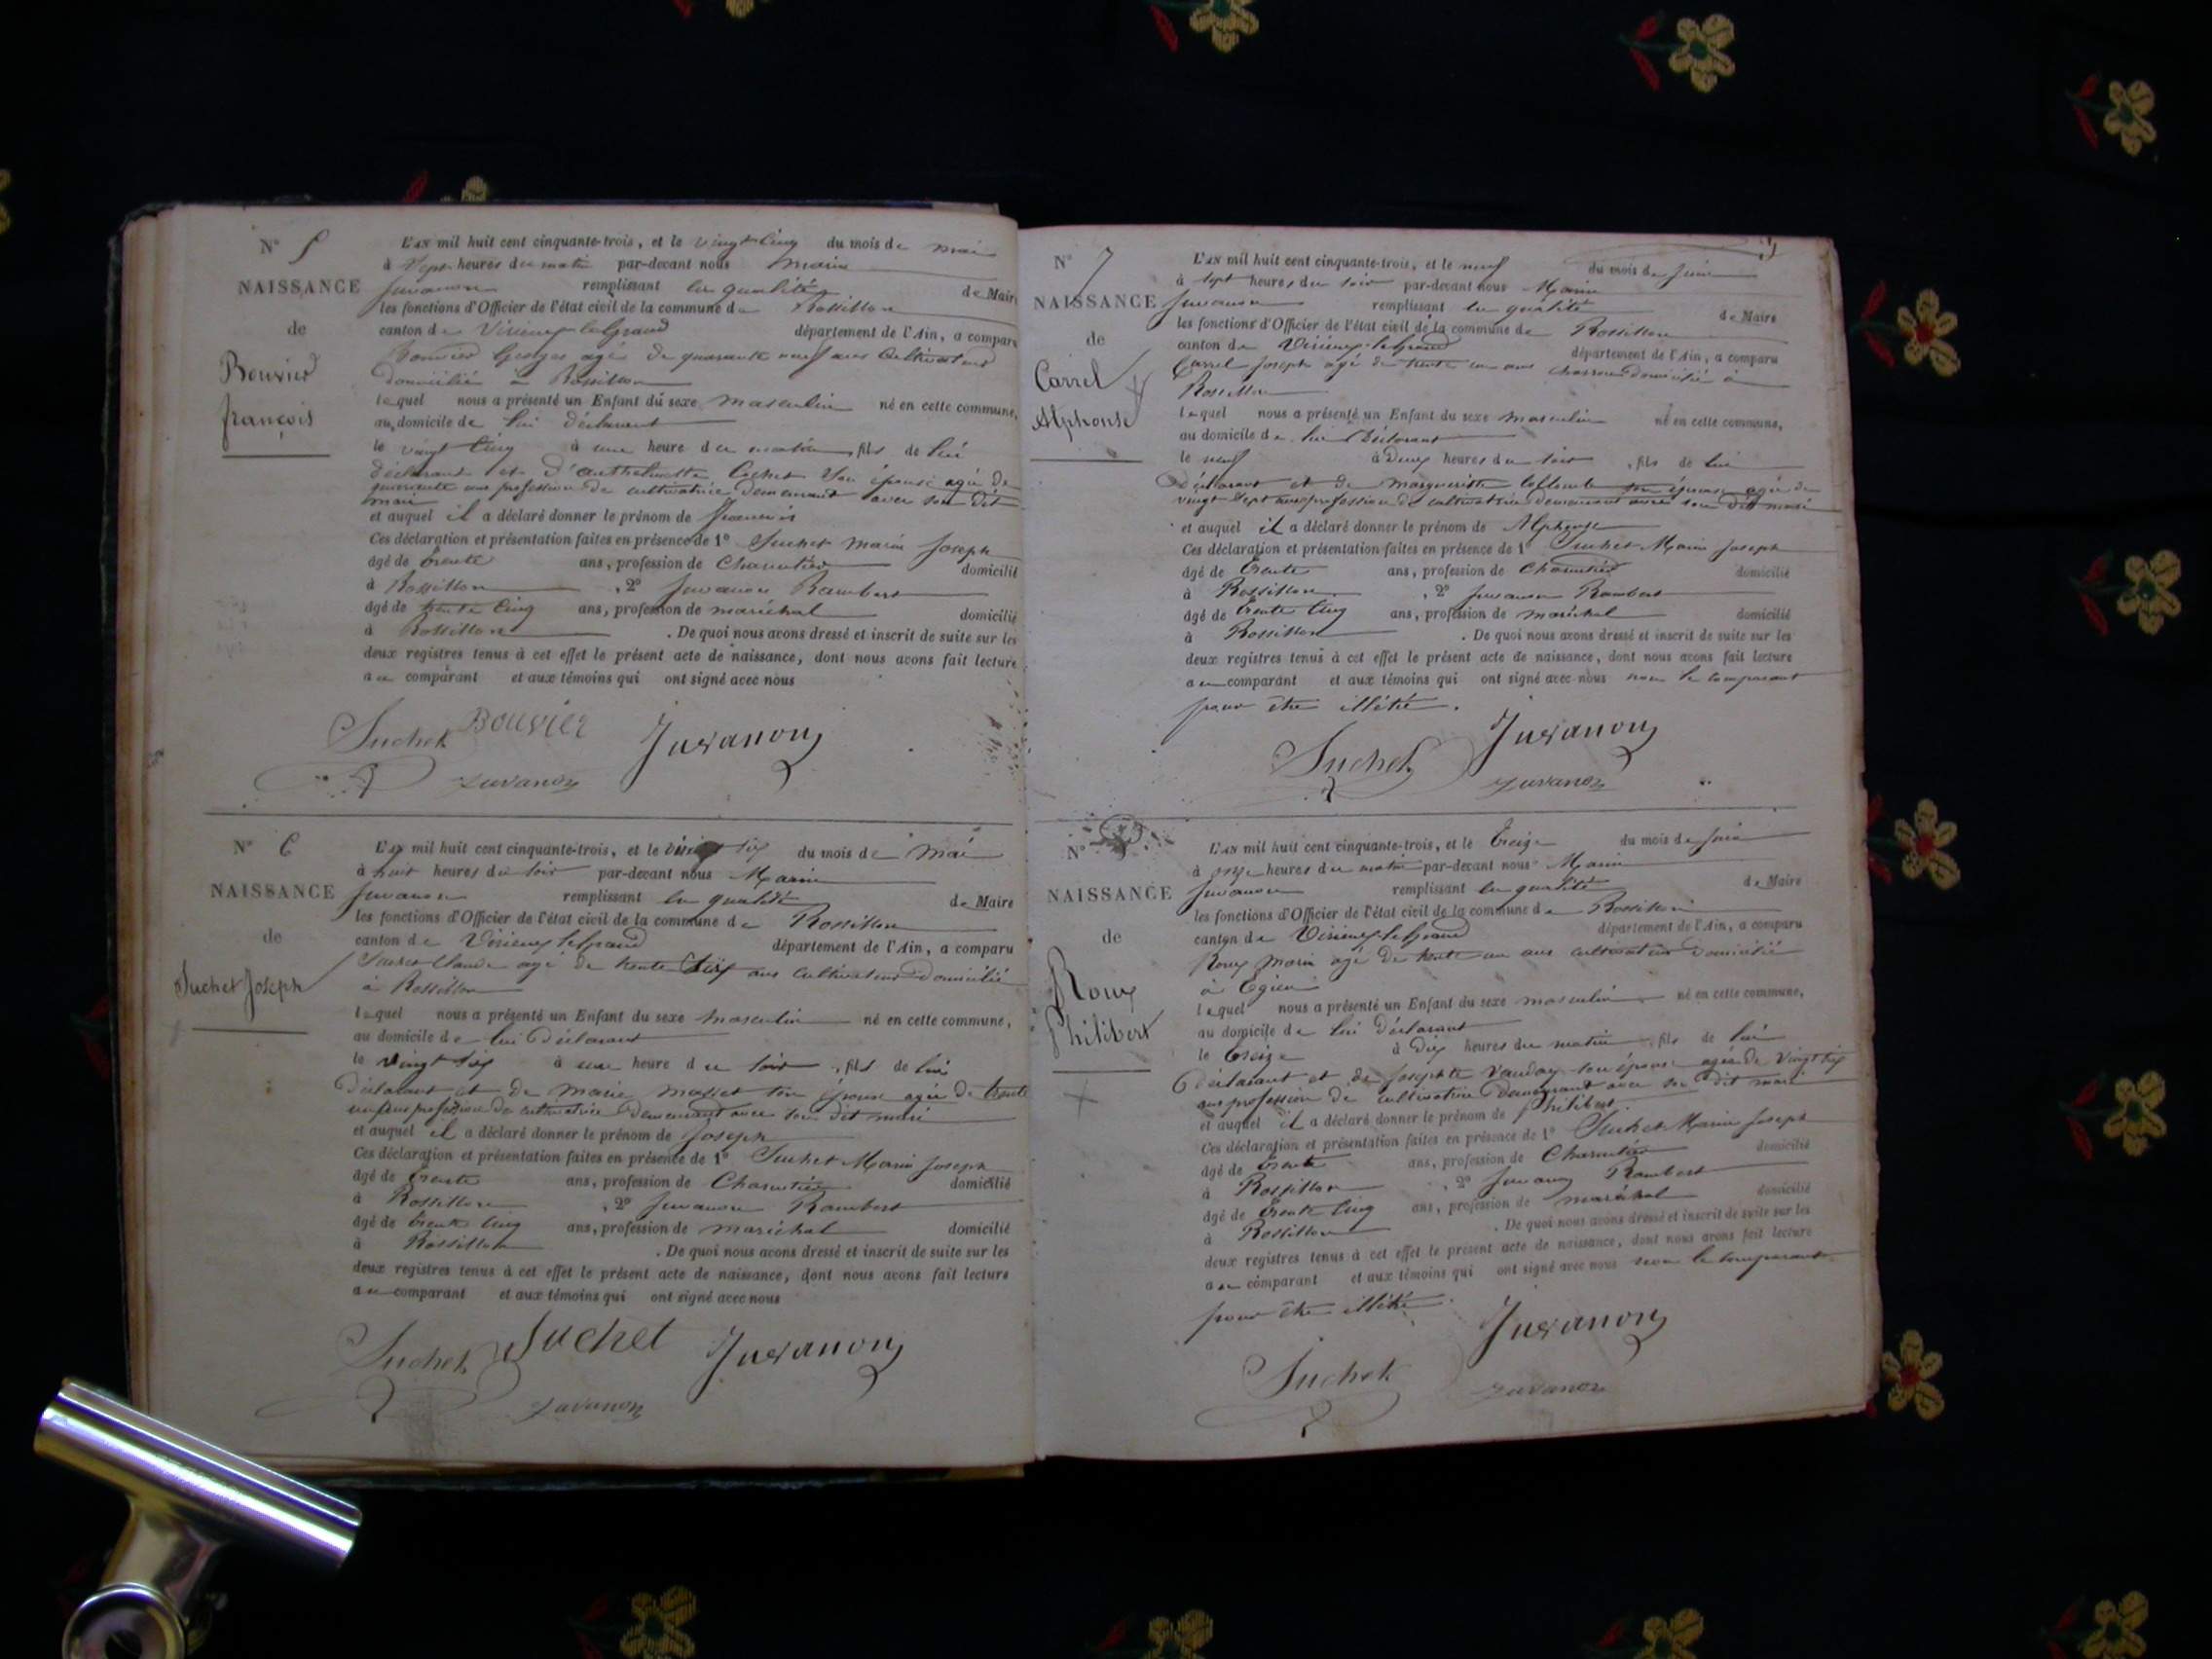 N° 5
NAISSANCE
de
Bouvier
françois
L'AN mil huit cent cinquante-trois, et le vingt cinq du mois de mai
à sept heures du matin par-devant nous Marin
Juvanon remplissant la qualité de Maire
les fonctions d'Officier de l'état civil de la commune de Rossillon
canton de Virieu le grand département de l'Ain, a comparu
Bouvier Georges agé de quarante neuf ans Cultivateur
domicilié à Rossillon
lequel nous a présenté un Enfant du sexe masculin né en cette commune,
au domicile de lui Déclarant
le vingt cinq à une heure du matin, fils de lui
déclarant et d'anthelmette Cochet son épouse agée de
quarante ans profession de cultivatrice demeurant avec son dit
mari
et auquel il a déclaré donner le prénom de François
Ces déclaration et présentation faites en présence de 1° Suchet Marin Joseph
âgé de trente ans, profession de Charcutier domicilié
à Rossillon, 2° Juvanon Rambert
âgé de trente cinq ans, profession de maréchal domicilié
à Rossillon. De quoi nous avons dressé et inscrit de suite sur les
deux registres tenus à cet effet le présent acte de naissance, dont nous avons fait lecture
au comparant et aux témoins qui ont signé avec nous
Suchet Bouvier Juvanon
Juvanon
N° 6
NAISSANCE
de
Suchet Joseph
L'AN mil huit cent cinquante-trois, et le vingt six du mois de Mai
à huit heures du soir par-devant nous Marin
Juvanon remplissant la qualité de Maire
les fonctions d'Officier de l'état civil de la commune de Rossillon
canton de Virieu le grand département de l'Ain, a comparu
Suchet Claude agé de trente six ans cultivateur domicilié
à Rossillon
lequel nous a présenté un Enfant du sexe masculin né en cette commune,
au domicile de lui Déclarant
le vingt six à une heure du soir, fils de lui
Déclarant et de Marie Masset son épouse agée de trente
un ans profession de cultivatrice demeurant avec son dit mari
et auquel il a déclaré donner le prénom de Joseph
Ces déclaration et présentation faites en présence de 1° Suchet Marin Joseph
âgé de trente ans, profession de Charcutier domicilié
à Rossillon, 2° Juvanon Rambert
âgé de trente cinq ans, profession de maréchal domicilié
à Rossillon. De quoi nous avons dressé et inscrit de suite sur les
deux registres tenus à cet effet le présent acte de naissance, dont nous avons fait lecture
au comparant et aux témoins qui ont signé avec nous
Suchet Suchet Juvanon
Juvanon
N° 7
NAISSANCE
de
Carrel
Alphonse
L'AN mil huit cent cinquante-trois, et le neuf du mois de Juin
à sept heures du soir par-devant nous Marin
Juvanon remplissant la qualité de Maire
les fonctions d'Officier de l'état civil de la commune de Rossillon
canton de Virieu-le-grand département de l'Ain, a comparu
Carrel Joseph agé de trente un ans charron domicilié à
Rossillon
lequel nous a présenté un Enfant du sexe masculin né en cette commune,
au domicile de lui Déclarant
le neuf à Deux heures du soir, fils de lui
Déclarant et de Marguerite son épouse agée de
vingt sept ans profession de cultivatrice demeurant avec son dit mari
et auquel il a déclaré donner le prénom de Alphonse
Ces déclaration et présentation faites en présence de 1° Suchet Marin Joseph
âgé de trente ans, profession de Charcutier domicilié
à Rossillon, 2° Juvanon Rambert
âgé de trente cinq ans, profession de maréchal domicilié
à Rossillon. De quoi nous avons dressé et inscrit de suite sur les
deux registres tenus à cet effet le présent acte de naissance, dont nous avons fait lecture
au comparant et aux témoins qui ont signé avec nous non le comparant
pour être illétré.
Suchet Juvanon
Juvanon
N°
NAISSANCE
de
Roux
Philibert
L'AN mil huit cent cinquante-trois, et le treize du mois de Juin
à onze heures du matin par-devant nous Marin
Juvanon remplissant la qualité de Maire
les fonctions d'Officier de l'état civil de la commune de Rossillon
canton de Virieu-le-grand département de l'Ain, a comparu
Roux Marin agé de trente un ans cultivateur domicilié
à Egieu
lequel nous a présenté un Enfant du sexe masculin né en cette commune,
au domicile de lui déclarant
le treize à dix heures du matin, fils de lui
déclarant et de Josephte Vauday son épouse agée de vingt six
ans profession de cultivatrice demeurant avec son dit mari
et auquel il a déclaré donner le prénom de Philibert.
Ces déclaration et présentation faites en présence de 1° Suchet Marin Joseph
âgé de trente ans, profession de Charcutier domicilié
à Rossillon, 2° Juvanon Rambert
âgé de trente cinq ans, profession de maréchal domicilié
à Rossillon. De quoi nous avons dressé et inscrit de suite sur les
deux registres tenus à cet effet le présent acte de naissance, dont nous avons fait lecture
au comparant et aux témoins qui ont signé avec nous non le comparant
pour être illétré.
Suchet Juvanon
Juvanon